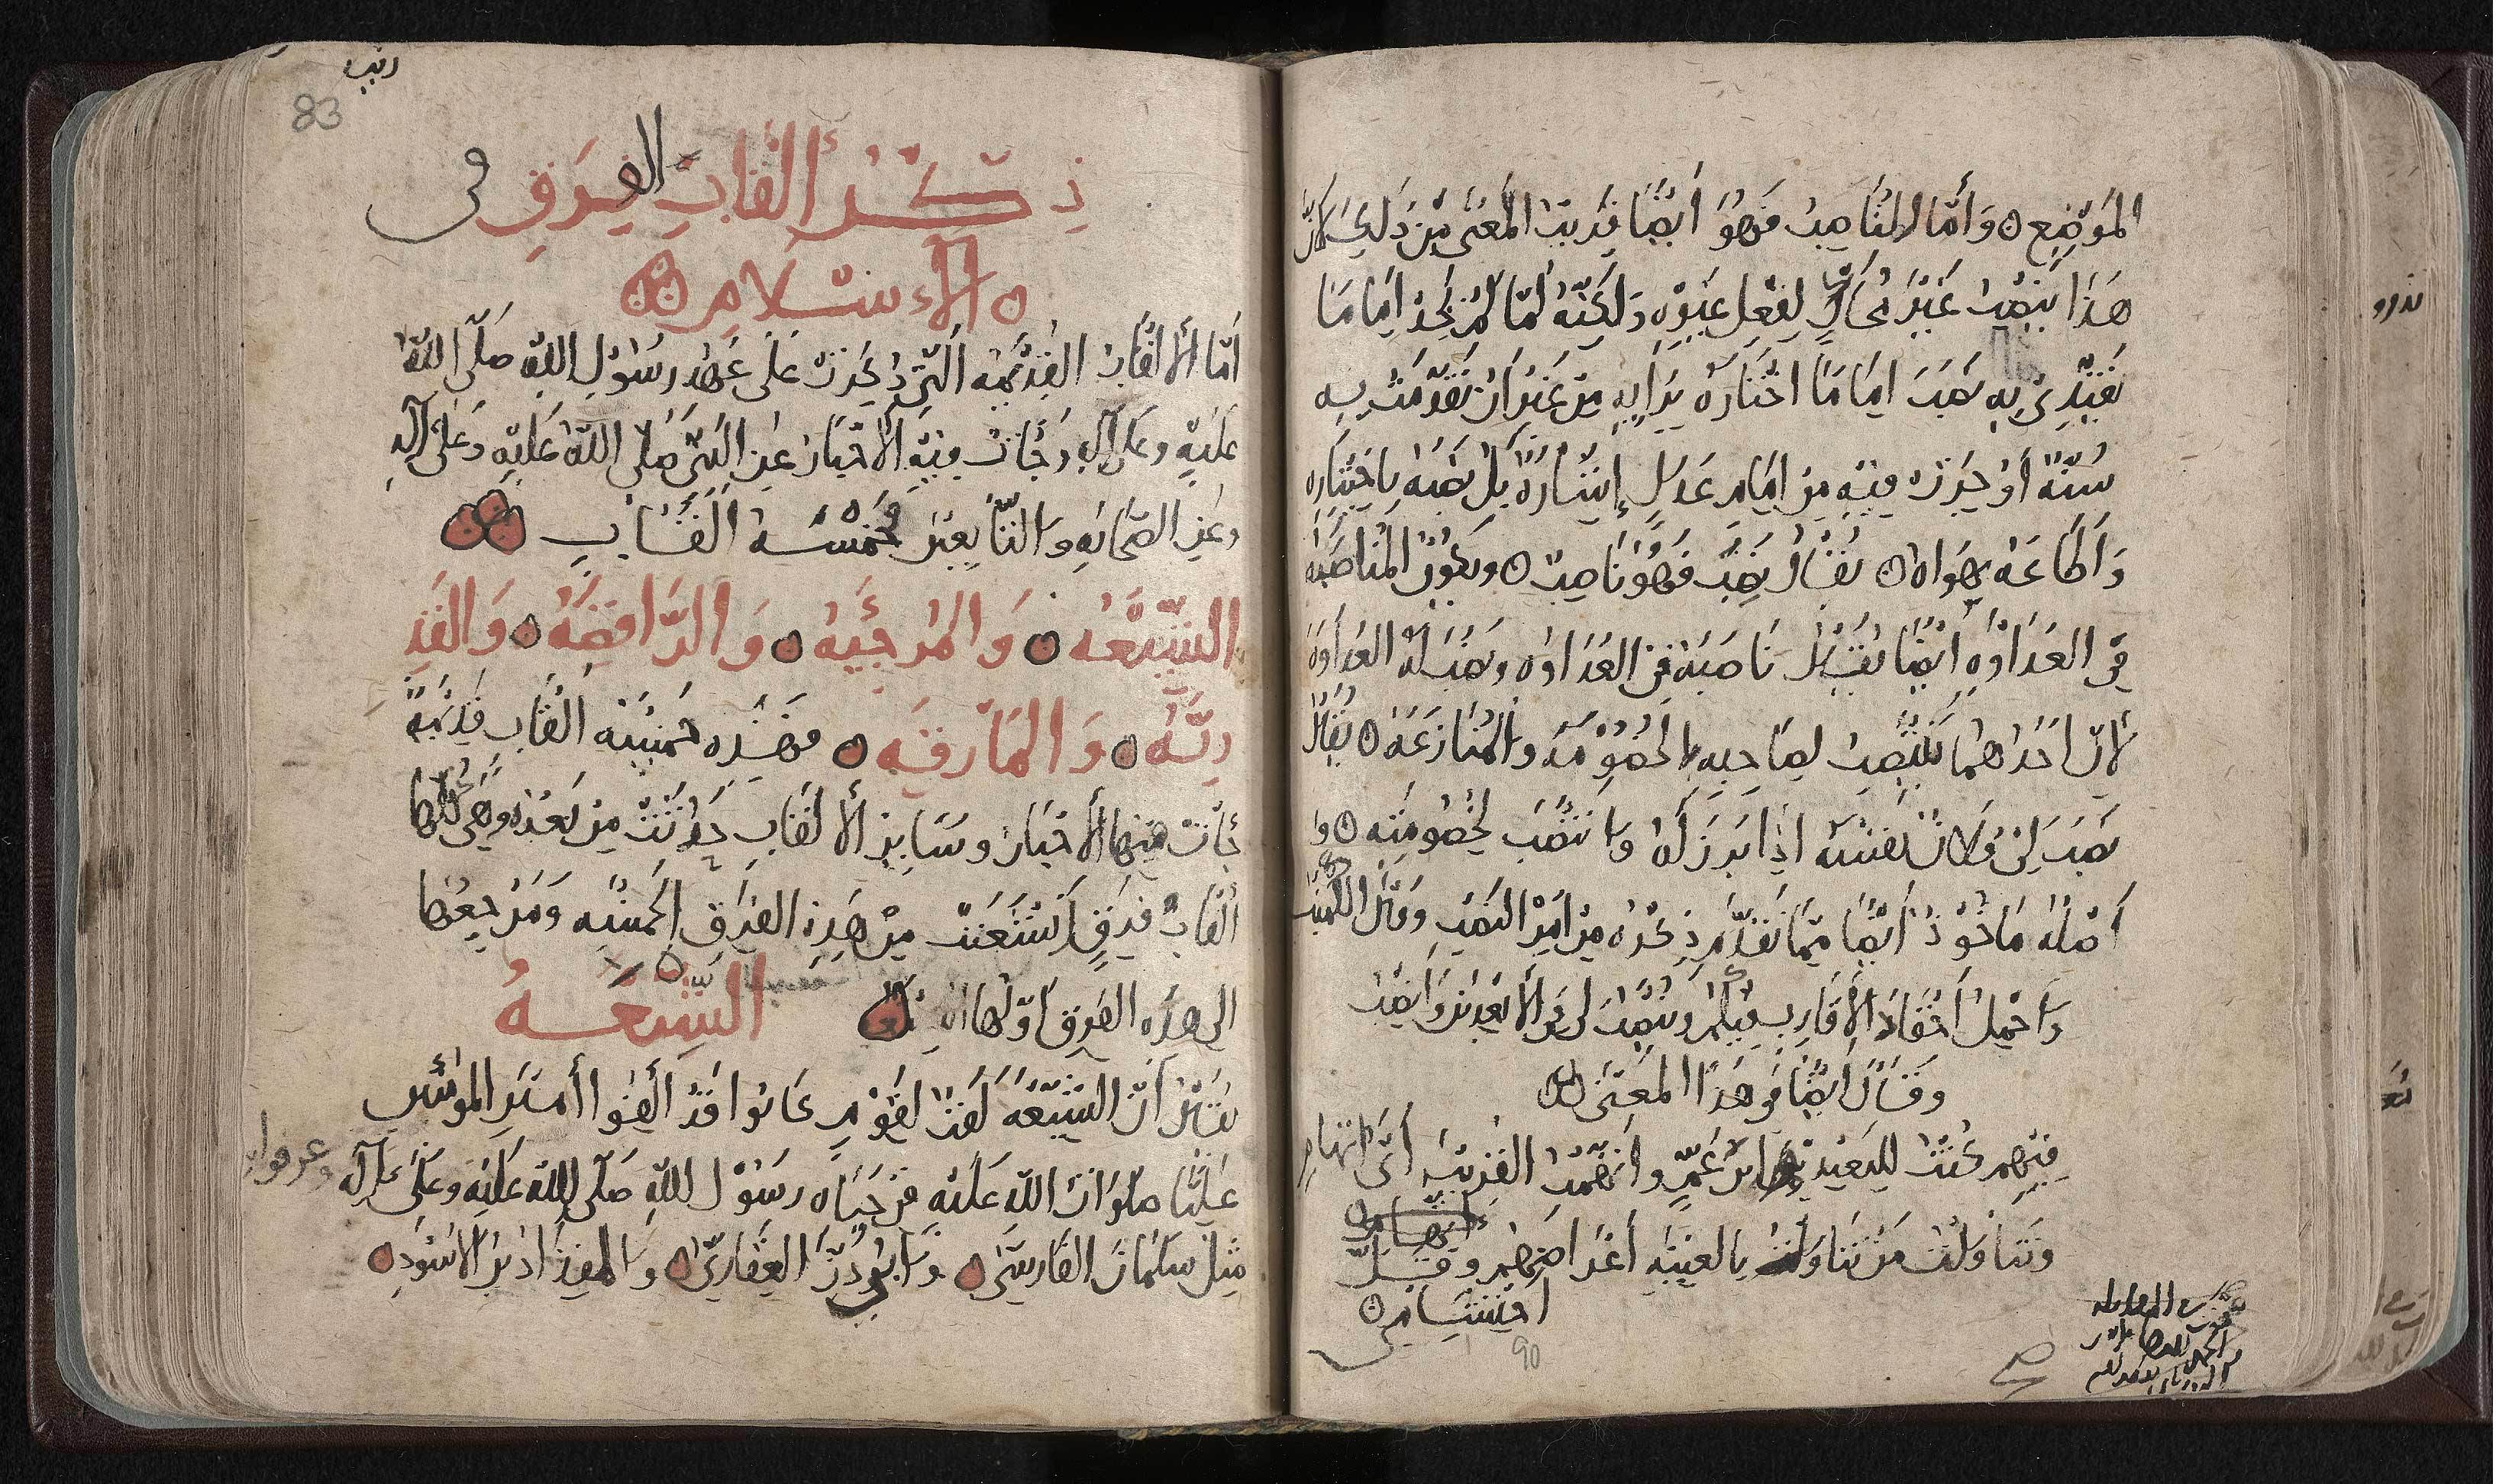 الموضع ٥ وأما الناصب فهو أيضا قريب المعنى من ذلك لأن
هذا ينصب غير محال لفعل غيره ولكنه لما لم يجد إماما
يقتدي به نصب إماما اختاره برأيه من غير أن تقدمت به
سنة أو جرت فيه من إمام عدل إشارة بل نصبه باختياره
وأطاعه بهواه ٥ يقال نصب فهو ناصب ٥ ويكون المناصبة
في العداوة أيضا يقال ناصبه في العداوه ونصب له العداوة
لأن أحدهما ينتصب لصاحبه بالخصومه والمنازعه ٥ يقال
نصب لي فلان نفسه إذا برز له وانتصب لخصومته ٥ و
أصله مأخوذ أيضا مما تقدم ذكره من أمر النصب وقال الكميت
وأحمل أحقاد الأقارب فيكم وينصب لي في الأبعدين وأنصب
وقال أيضا في هذا المعنى
فيهم كنت للبعيد ابن عم واتهمت القريب أي اتهام
وتناولت من تناول بالغيبه أعراضهم وقل
احتشامي ٥
90
83
ذكر ألقاب الفرق في
٥ الإسلام
أما الألقاب القديمه التي ذكرت على عهد رسول الله صلى الله
عليه وعلى آله وجات فيه الأخبار عن النبي صلى الله عليه وعلى آله
وعن الصحابه والتابعين خمسه ألقاب
الشيعه ٥ والمرجئه ٥ والرافضه ٥ والقد
ريه ٥ والمارقه ٥ فهذه خمسه ألقاب قديمة
جات فيها الأخبار وساير الألقاب حدثت من بعد وهي كلها
ألقاب فرق انشعبت من هذه الفرق الخمسه ومرجعها
الى هذه الفرق أولها الشيعه
يقال أن الشيعه لقب لقوم كانوا قد ألفوا أمير المؤمنين
عليا صلوات الله عليه في حياه رسول الله صلى الله عليه وعلى آله وعرفوا به
مثل سلمان الفارسي ٥ وأبي ذر الغفاري ٥ والمقداد بن الاسود ٥